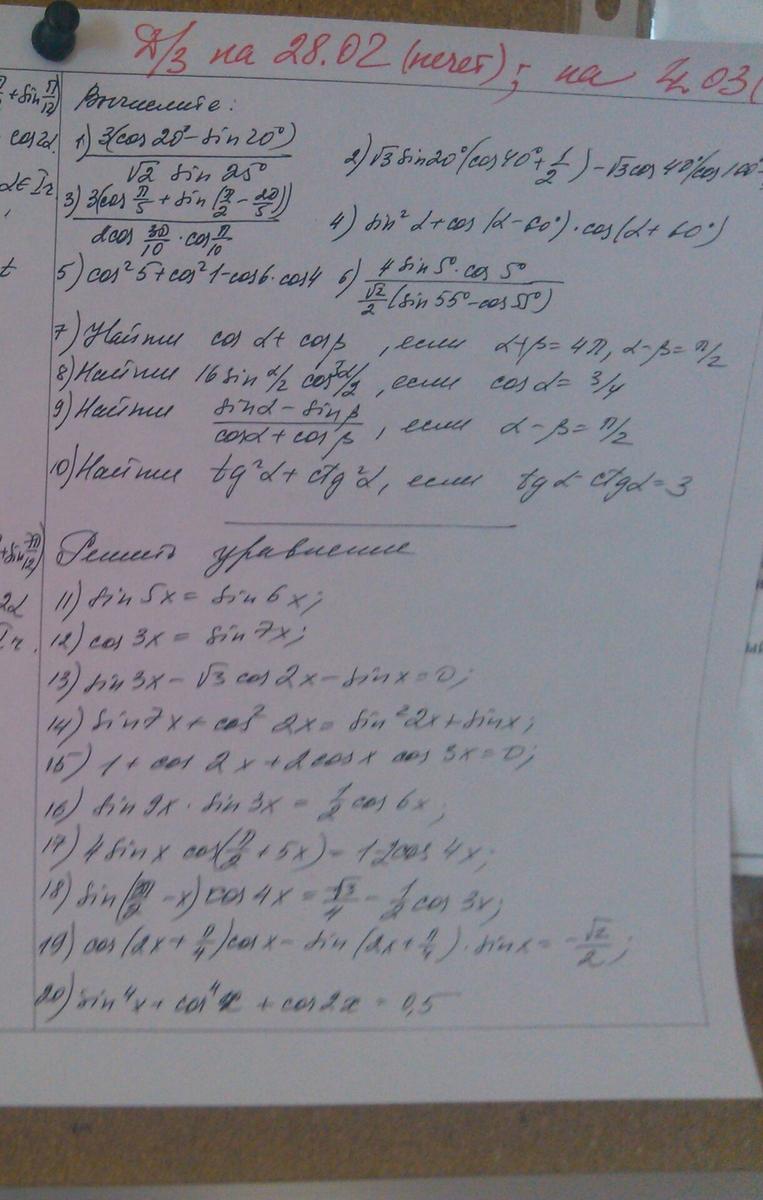 Д/З на 28.02 (нечет); на 4.03(
Вычислите:
1) 3(cos 20° - sin 20°) / √2 sin 25°
2) √3 sin 20° (cos 40° + 1/2) - √3 cos 40° (cos 100°
3) 3(cos π/5 + sin (π/2 - 2π/5)) / 2cos 3π/10 · cos π/10
4) sin² α + cos (α - 60°) · cos (α + 60°)
5) cos² 5 + cos² 1 - cos 6 · cos 4
6) 4 sin 5° · cos 5° / √2/2 (sin 55° - cos 55°)
7) Найти cos α + cos β, если α + β = 4π, α - β = π/2
8) Найти 16 sin α/2 cos α/2, если cos α = 3/4
9) Найти sin α - sin β / cos α + cos β, если α - β = π/2
10) Найти tg² α + ctg² α, если tg α - ctg α = 3
Решить уравнение
11) sin 5x = sin 6x;
12) cos 3x = sin 7x;
13) sin 3x - √3 cos 2x - sin x = 0;
14) sin 7x + cos² 2x = sin² 2x + sin x;
15) 1 + cos 2x + 2 cos x cos 3x = 0;
16) sin 9x · sin 3x = 1/2 cos 6x;
17) 4 sin x cos (π/2 + 5x) = 1 - 2cos 4x;
18) sin (π/2 - x) cos 4x = √3/4 - 1/2 cos 3x;
19) cos (2x + π/4) cos x - sin (2x + π/4) · sin x = -√2/2;
20) sin⁴ x + cos⁴ x + cos 2x = 0,5